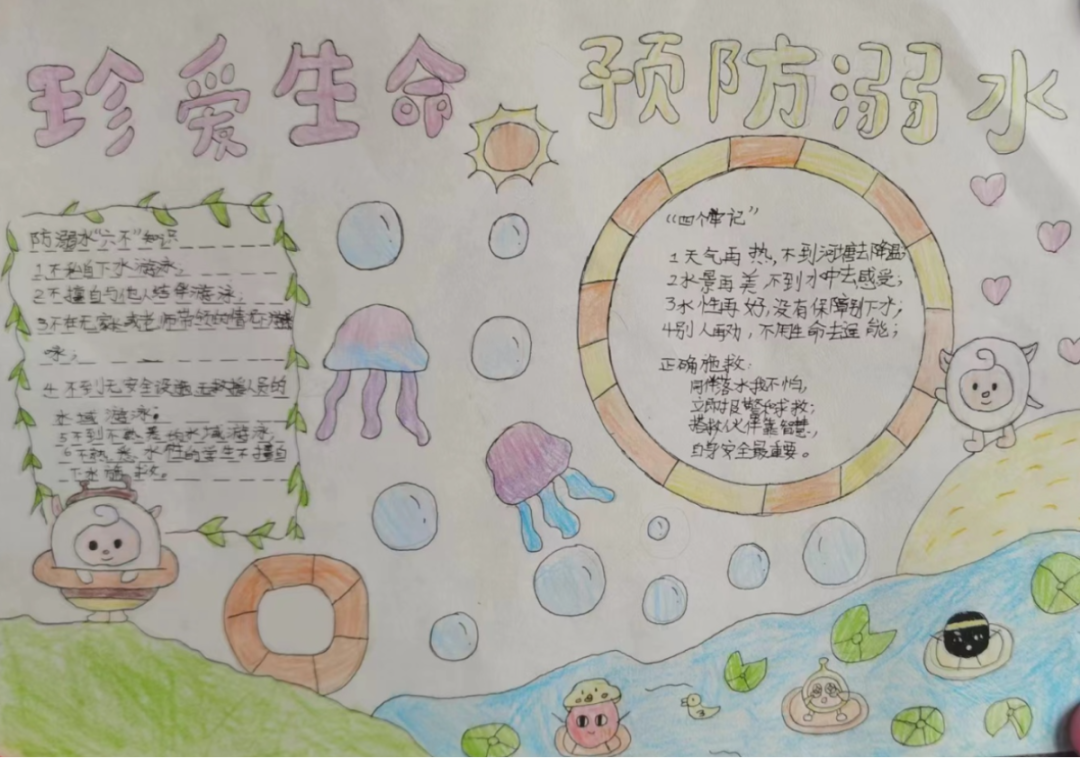 珍爱生命 预防溺水
防溺水"六不"知识
1.不私自下水游泳；
2不擅自与他人结伴游泳；
3不在无家长或老师带领的情况游
泳；
4.不到无安全设施无救援人员的
水域游泳；
5不到不熟悉的水域游泳
6不熟悉水性的学生不擅自
下水施救。
"四个牢记"
1天气再热,不到河塘去降温
2水景再美,不到水中去感受;
3水性再好,没有保障别下水;
4别人再劝,不用生命去逞能;
正确施救:
同伴落水我不怕,
立即报警和求救;
搭救伙伴靠智慧,
自身安全最重要。